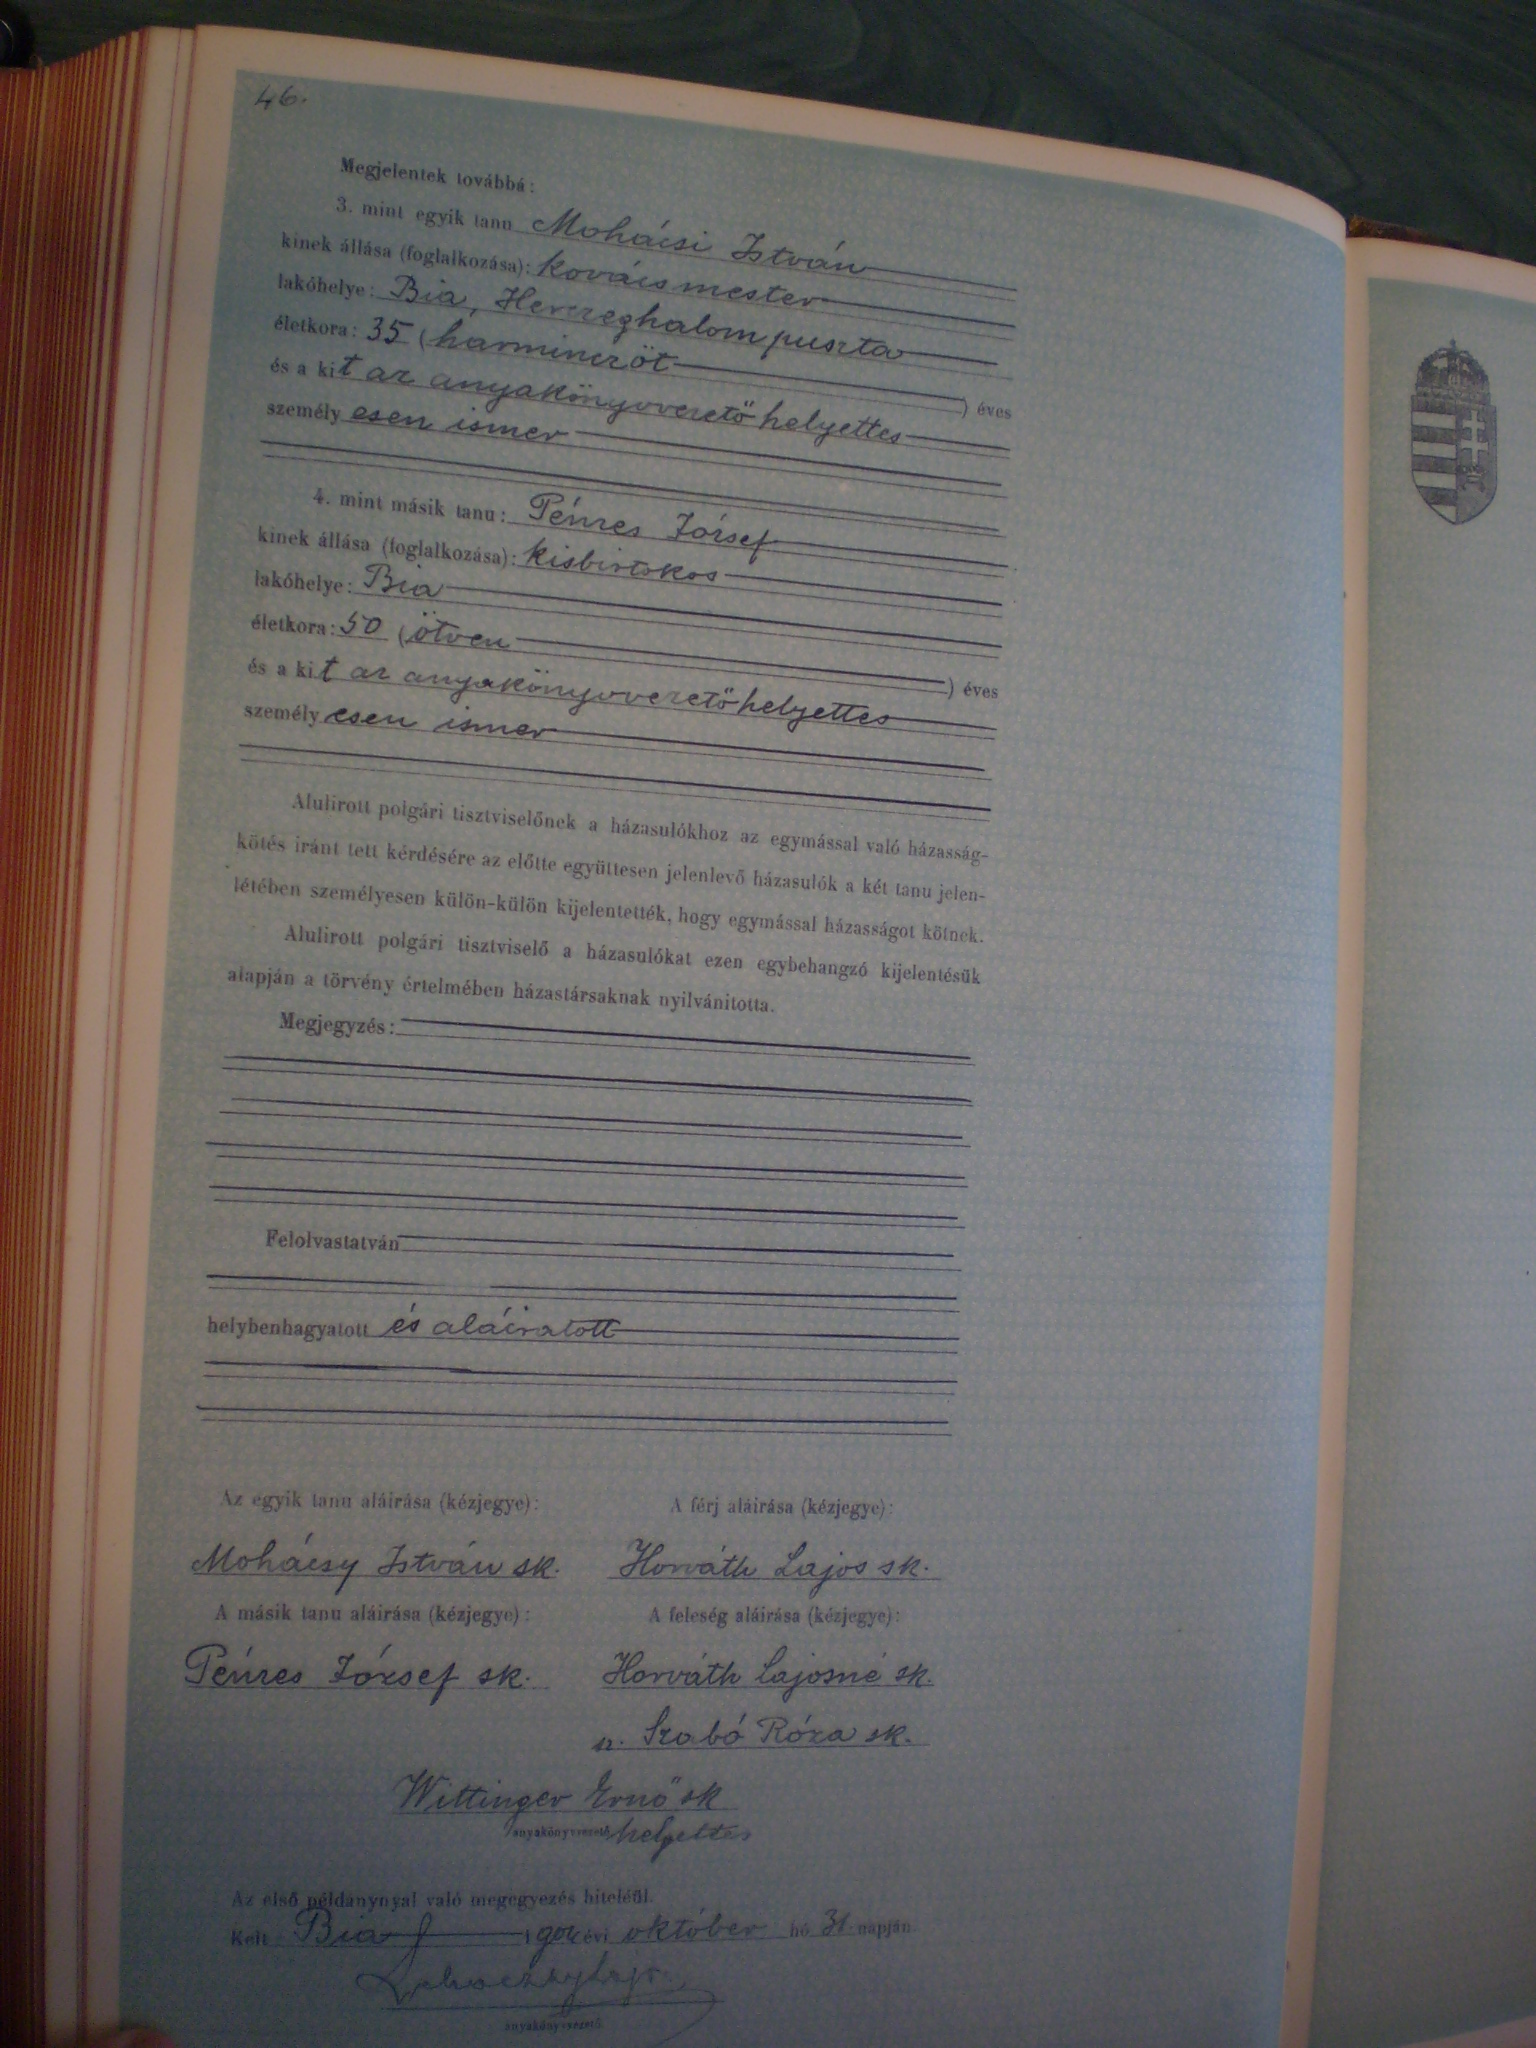 46.
Megjelentek továbbá:
3. mint egyik tanu Mohácsi István
kinek állása (foglalkozása): kovácsmester
lakóhelye: Bia, Herczeghalom puszta
életkora: 35 (harminczöt ) éves
és a kit az anyakönyvvezető helyettes
személyesen ismer
4. mint másik tanu: Pénzes József
kinek állása (foglalkozása): kisbirtokos
lakóhelye: Bia
életkora: 50 (ötven ) éves
és a kit az anyakönyvvezető helyettes
személyesen ismer
Alulirott polgári tisztviselőnek a házasulókhoz az egymással való házasság-
kötés iránt tett kérdésére az előtte együttesen jelenlevő házasulók a két tanu jelen-
létében személyesen külön-külön kijelentették, hogy egymással házasságot kötnek.
Alulirott polgári tisztviselő a házasulókat ezen egybehangzó kijelentésük
alapján a törvény értelmében házastársaknak nyilvánitotta.
Megjegyzés:
Felolvastatván
helybenhagyatott és aláiratott
Az egyik tanu aláirása (kézjegye): A férj aláirása (kézjegye):
Mohácsy István sk. Horváth Lajos sk.
A másik tanu aláirása (kézjegye): A feleség aláirása (kézjegye):
Pénzes József sk. Horváth Lajosné sk.
sz. Szabó Róza sk.
Wittinger Ernő sk
anyakönyvvezető helyettes
Az első példánynyal való megegyezés hiteléül.
Kelt Bia évi október hó 31 napján
anyakönyvvezető